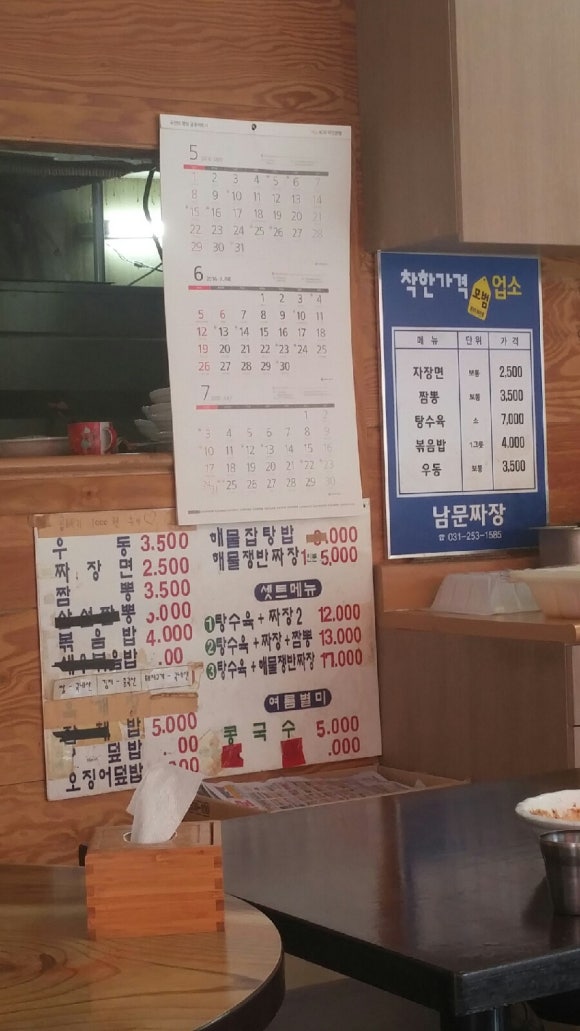 5
1 2 3 4 5 6 7
8 9 10 11 12 13 14
15 16 17 18 19 20 21
22 23 24 25 26 27 28
29 30 31
6
1 2 3 4
5 6 7 8 9 10 11
12 13 14 15 16 17 18
19 20 21 22 23 24 25
26 27 28 29 30
7
1 2
3 4 5 6 7 8 9
10 11 12 13 14 15 16
17 18 19 20 21 22 23
24 25 26 27 28 29 30
31
착한가격 모범 업소
메뉴 단위 가격
자장면 보통 2,500
짬뽕 보통 3,500
탕수육 소 7,000
볶음밥 1그릇 4,000
우동 보통 3,500
남문짜장
☎ 031-253-1585
우동 3.500
짜장면 2.500
짬뽕 3.500
뽕 .000
볶음밥 4.000
볶음밥 .00
쌀-국내산 김치-중국산 돼지고기-국내산
밥 5.000
덮밥 00
오징어덮밥
해물잡탕밥 .000
해물쟁반짜장 5.000
셋트메뉴
1 탕수육+짜장2 12.000
2 탕수육+짜장+짬뽕 13.000
3 탕수육+해물쟁반짜장 17.000
여름별미
콩국수 5.000
.000